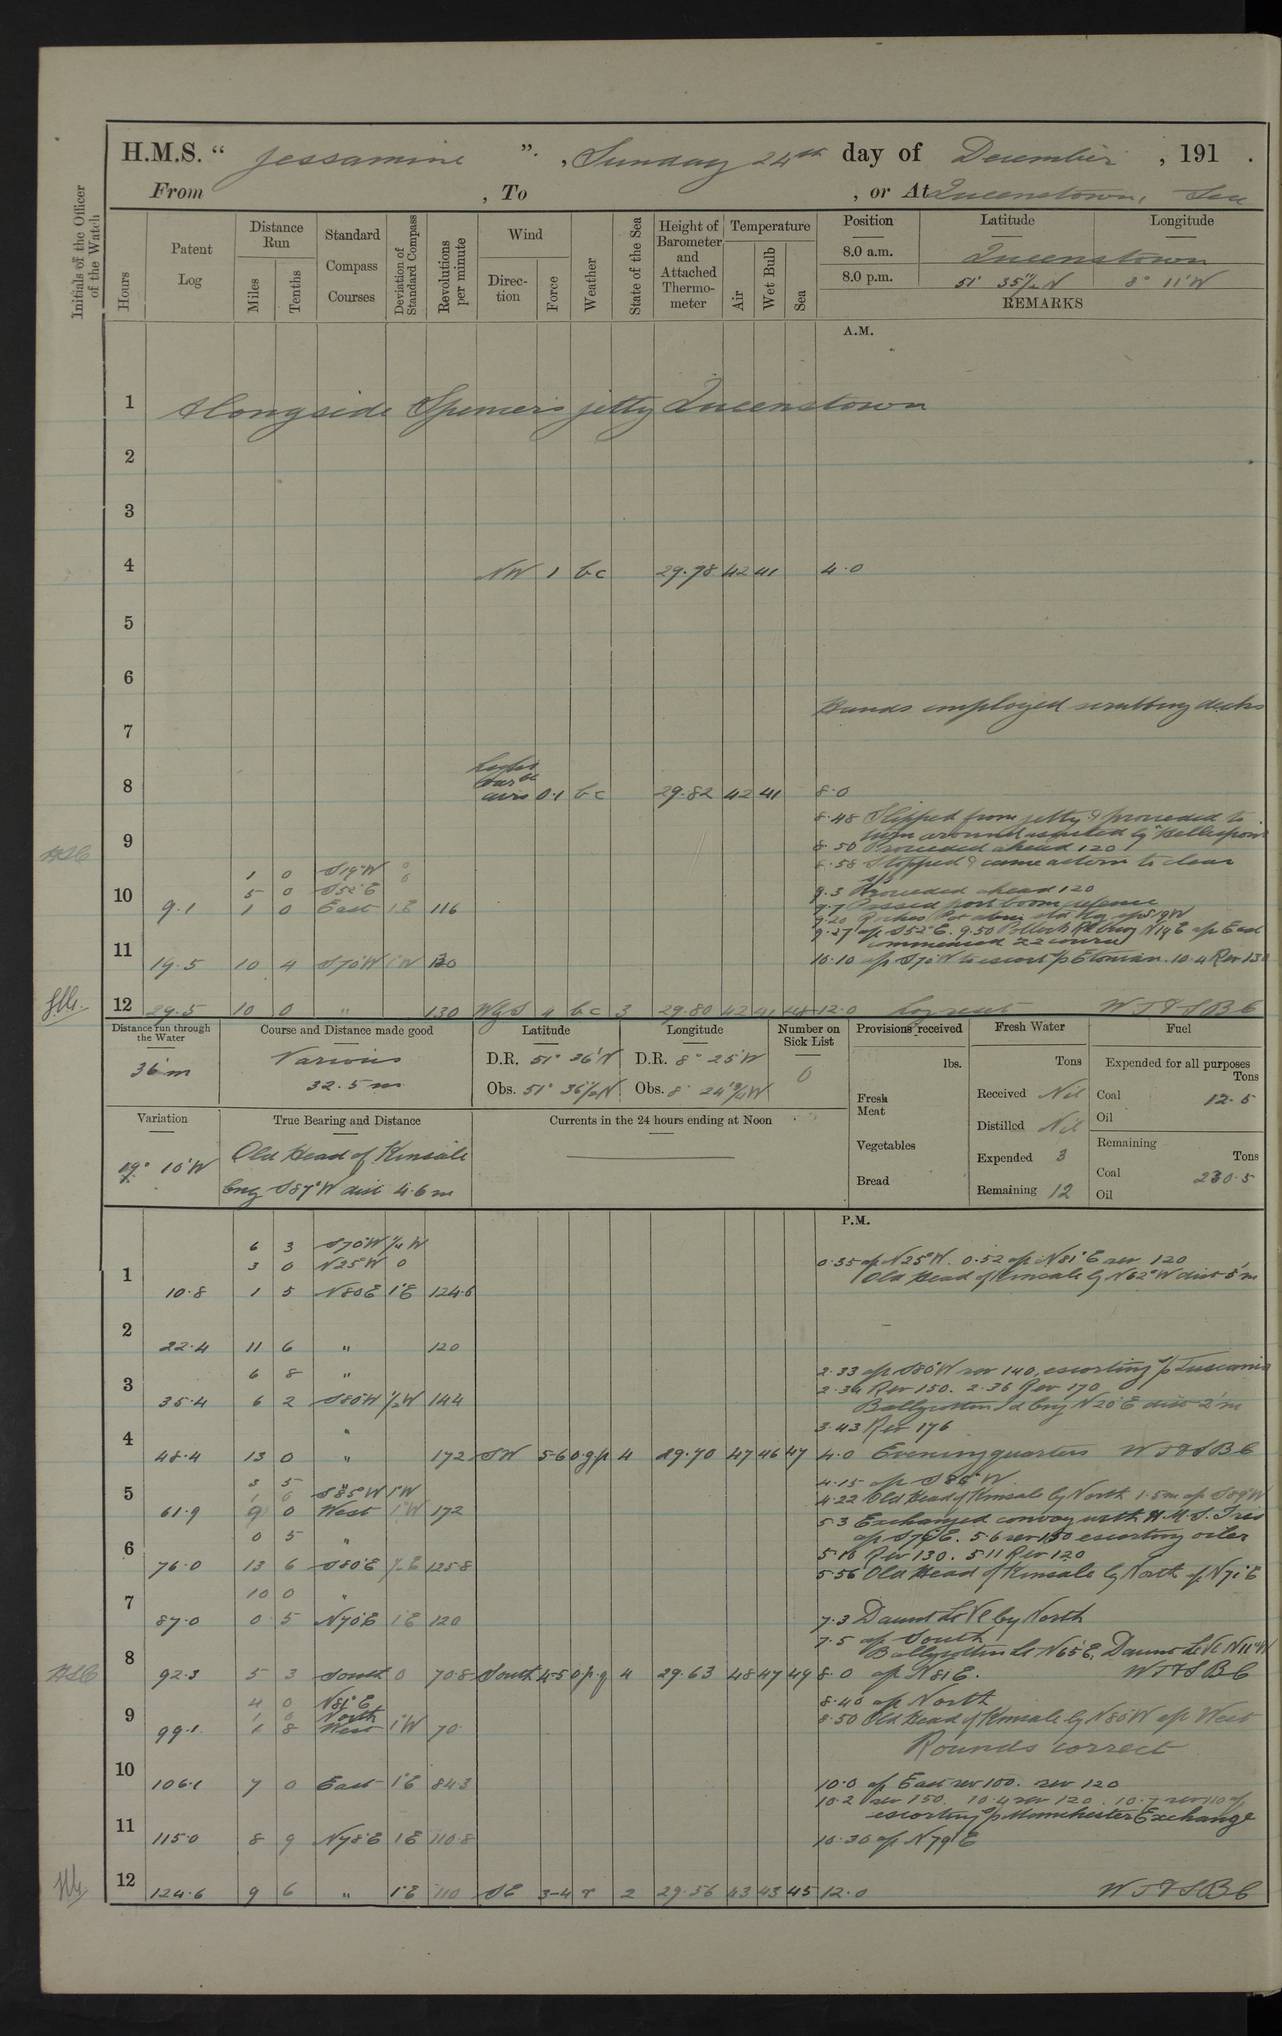 H.M.S. “ Jessamine ”. , Sunday 24th day of December , 191 .
From , To , or At Queenstown, Sea
Initials of the Officer of the Watch
Hours
Patent Log
Distance Run
Miles
Tenths
Standard Compass Courses
Deviation of Standard Compass
Revolutions per minute
Wind
Direction
Force
Weather
State of the Sea
Height of Barometer and Attached Thermometer
Temperature
Air
Wet Bulb
Sea
Position Latitude Longitude
8.0 a.m. Queenstown
8.0 p.m. 51° 35½'N 8° 11'W
REMARKS
A.M.
1 Alongside Spencer's jetty Queenstown
2
3
4 NW 1 bc 29.78 42 41 4.0
5
6
Hands employed scrubbing decks
7
Light
airs 0.1 bc 29.82 42 41 8.0
8
8.48 Slipped from jetty & proceeded to
turn around assisted by "Hellespont"
9
8.50 Proceeded ahead 120
8.58 Stopped & came astern to clear
1 0 S19°W 0
5 0 S52°E 0
9.3 Proceeded ahead 120
10 9.1 1 0 East 1E 116
9.7 Passed port boom defence
9.27 a/c S52°E. 9.50 Pollock Rk buoy N19E a/c East
commenced zz course
11 19.5 10 4 S70°W 1°W 130
10.10 a/c S70°W to escort s/s Etonian. 10.4 Rev 130
12 29.5 10 0 " 130 W4S 4 bc 3 29.80 42 41 48 12.0 W T & S B C
Distance run through the Water
36'm
Course and Distance made good
Various
32.5 m
Latitude
D.R. 51° 36'N
Obs. 51° 36½N
Longitude
D.R. 8° 25'W
Obs. 8° 24'¾W
Number on Sick List
0
Provisions received
lbs.
Fresh Meat
Vegetables
Bread
Fresh Water
Tons
Received Nil
Distilled Nil
Expended 3
Remaining 12
Fuel
Expended for all purposes
Tons
Coal 12.5
Oil
Remaining
Tons
Coal 230.5
Oil
Variation
19° 10'W
True Bearing and Distance
Old Head of Kinsale
brg S87°W dist 4.6 m
Currents in the 24 hours ending at Noon
P.M.
6 3 S70°W ½W
3 0 N25°W 0
0.35 a/c N25°W. 0.52 a/c N81°E rev 120
Old Head of Kinsale by N62°W dist 5'm
1 10.8 1 5 N80E 1°E 124.6
2 22.4 11 6 " 120
6 8 "
2.33 a/c S80°W rev 140, escorting s/s Tuscania
2.34 Rev 150. 2.36 Rev 170
3 35.4 6 2 S80W ½W 144
Ballycotton Id brg N20°E dist 2'm
3.43 Rev 176
4 48.4 13 0 " 172 SW 5-6 ogp 4 29.70 47 46 47 4.0 Evening quarters W T & S B C
4.15 a/c S86°W
3 5 S85°W 1°W
4.22 Old Head of Kinsale by North 1.5m a/c S89W
5 61.9 9 0 West 1°W 172
5.3 Exchanged convoy with H.M.S. Iris
0 5 "
a/c S79°E. 5.6 rev 150 escorting oiler
5.10 Rev 130. 5.11 Rev 120
6 76.0 13 6 S80E ½E 125.8
5.56 Old Head of Kinsale by North a/c N71°E
10 0 "
7 87.0 0 5 N70E 1°E 120
7.3 Daunt Lt Vl by North
7.5 a/c South
Ballycotton Lt N65E, Daunt Lt Vl N11°W
8 92.3 5 3 South 0 70.8 South 4-5 opq 4 29.63 48 47 49 8.0 a/c N81E. W T & S B C
4 0 N81°E
1 0 North
8.40 a/c North
8.50 Old Head of Kinsale by N80W a/c West
9 99.1 1 8 West 1°W 70
Rounds correct
10 106.1 7 0 East 1°E 84.3
10.0 a/c East rev 100. rev 120
10.2 rev 150. 10.4 rev 120. 10.7 rev 110
escorting s/s Manchester Exchange
11 115.0 8 9 N78E 1E 110.8
10.30 a/c N79E
12 124.6 9 6 " 1°E 110 SE 3-4 r 2 29.56 43 43 45 12.0 W T & S B C